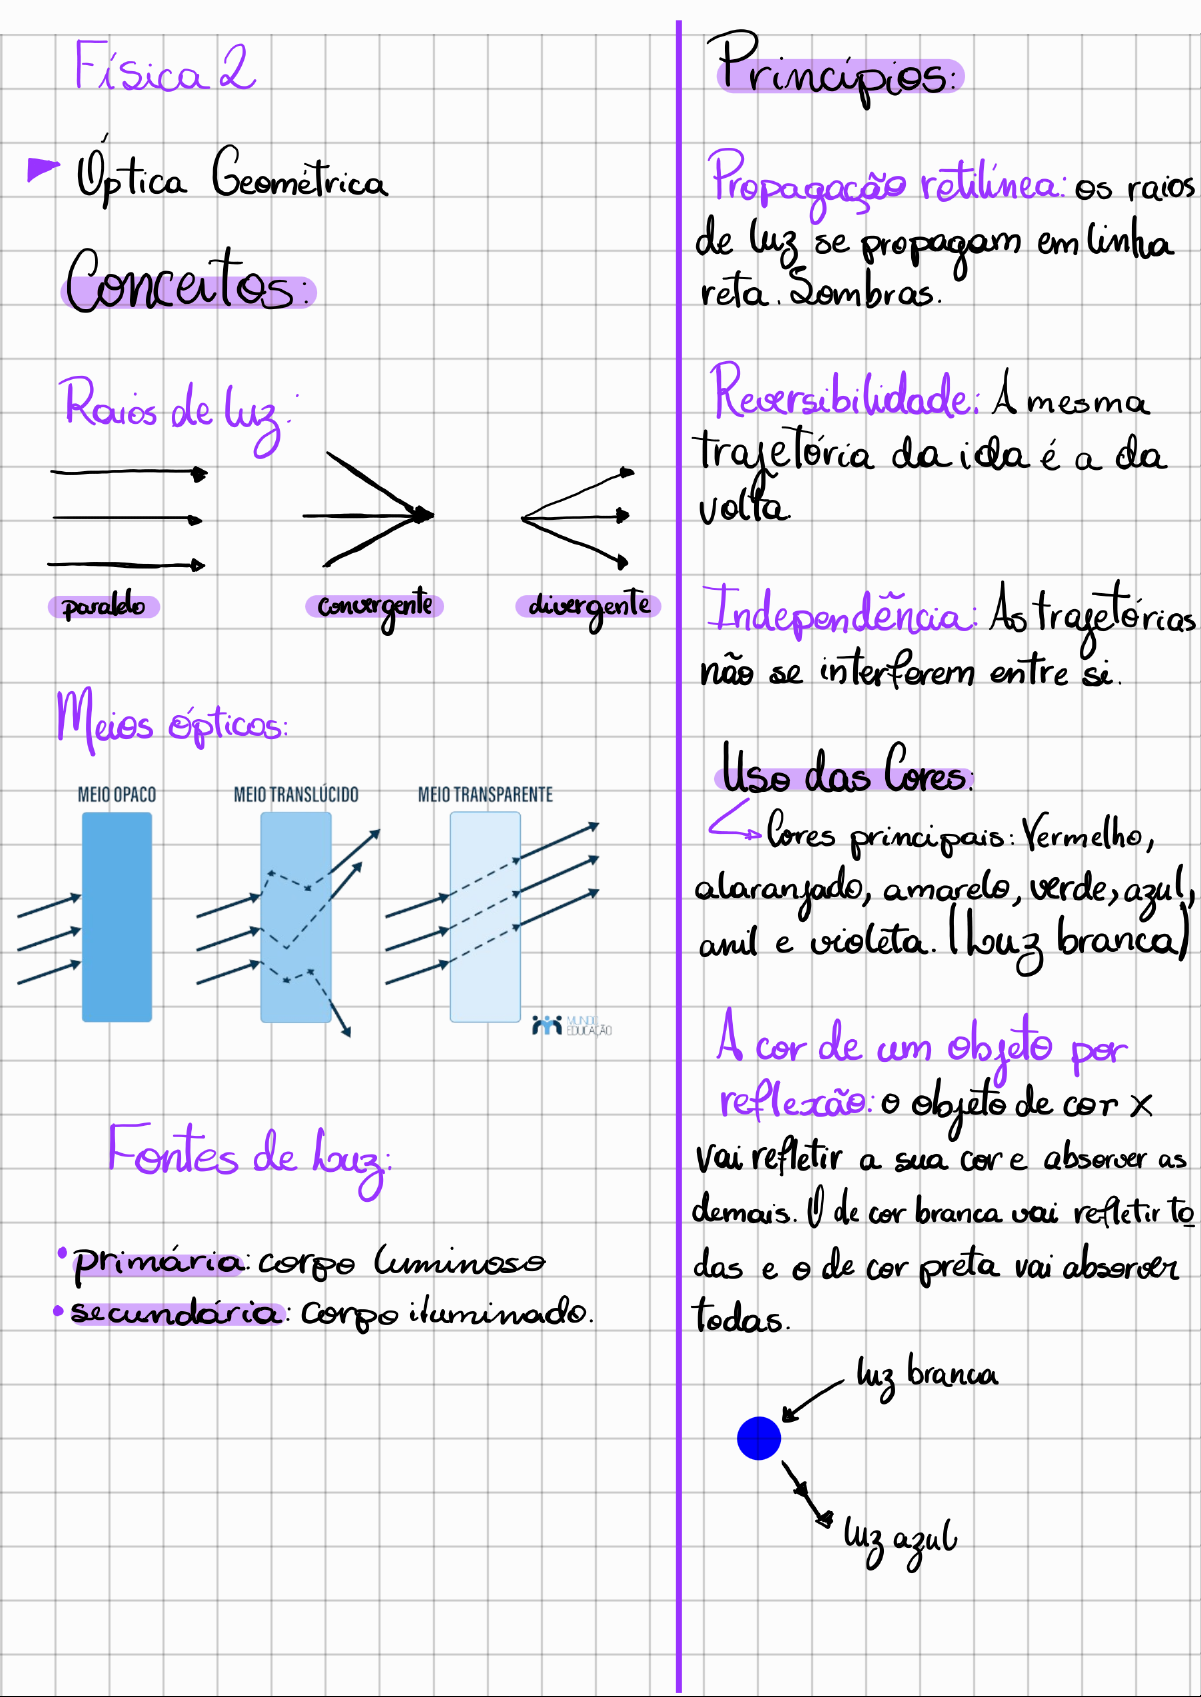 Física 2
Óptica Geométrica
Conceitos:
Raios de luz:
paralelo
convergente
divergente
Meios ópticos:
MEIO OPACO
MEIO TRANSLÚCIDO
MEIO TRANSPARENTE
MUNDO
EDUCAÇÃO
Fontes de Luz:
• primária: corpo luminoso
• secundária: corpo iluminado.
Princípios:
Propagação retilínea: os raios
de luz se propagam em linha
reta. Sombras.
Reversibilidade: A mesma
trajetória da ida é a da
volta.
Independência: As trajetórias
não se interferem entre si.
Uso das Cores:
Cores principais: Vermelho,
alaranjado, amarelo, verde, azul,
anil e violeta. (Luz branca)
A cor de um objeto por
reflexão: o objeto de cor x
vai refletir a sua cor e absorver as
demais. O de cor branca vai refletir to
das e o de cor preta vai absorver
todas.
luz branca
luz azul